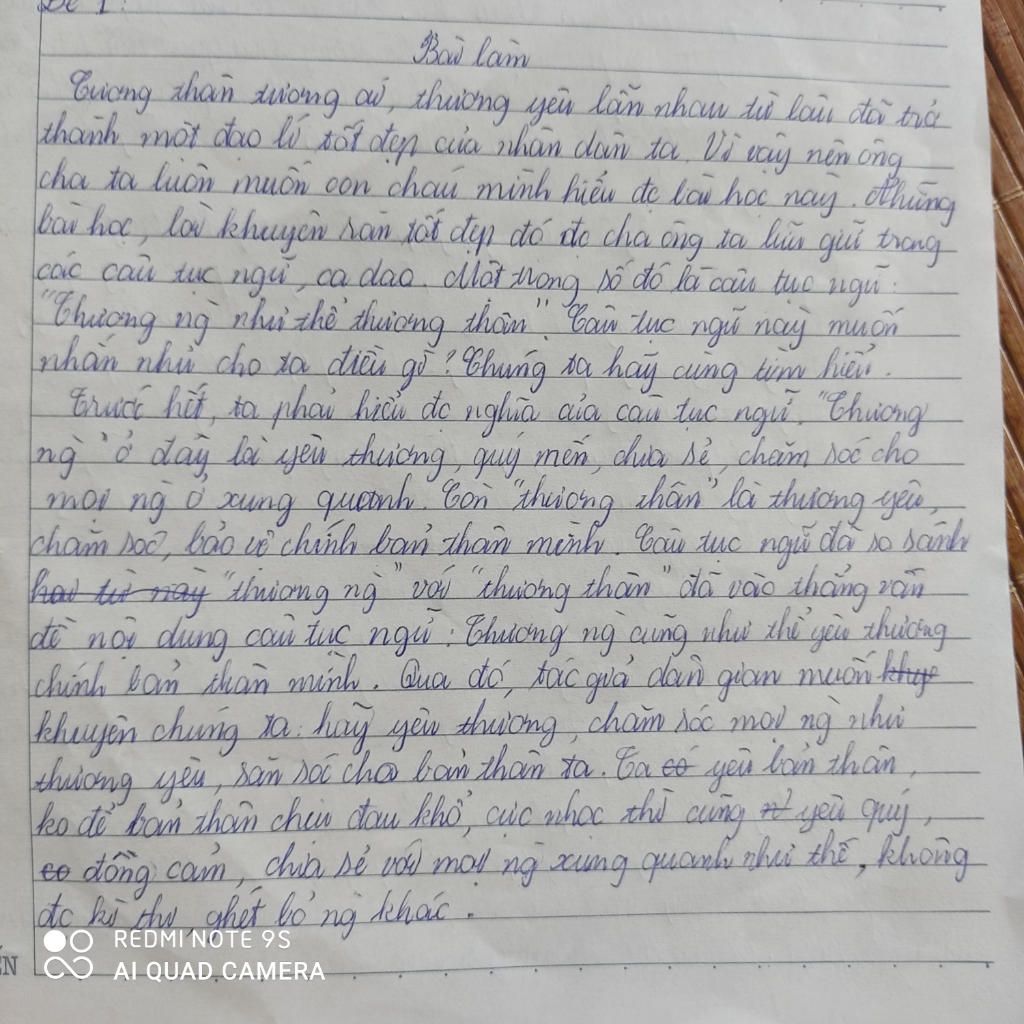 Đề 1:
Bài làm
Tương thân tương ái, thương yêu lẫn nhau từ lâu đã trở
thành một đạo lí tốt đẹp của nhân dân ta. Vì vậy nên ông
cha ta luôn muốn con cháu mình hiểu đc bài học này. Những
bài học, lời khuyên răn tốt đẹp đó đc cha ông ta lưu giữ trong
các câu tục ngữ, ca dao. Một trong số đó là câu tục ngữ:
"Thương ng` như thể thương thân" Câu tục ngữ này muốn
nhắn nhủ cho ta điều gì? Chúng ta hãy cùng tìm hiểu.
Trước hết, ta phải hiểu đc nghĩa của câu tục ngữ. "Thương
ng`" ở đây là yêu thương, quý mến, chia sẻ, chăm sóc cho
mọi ng` ở xung quanh. Còn "thương thân" là thương yêu,
chăm sóc, bảo vệ chính bản thân mình. Câu tục ngữ đã so sánh
hai từ này "thương ng`" với "thương thân" đã vào thẳng vấn
đề nội dung câu tục ngữ: Thương ng` cũng như thể yêu thương
chính bản thân mình. Qua đó, tác giả dân gian muốn khuy
khuyên chúng ta: hãy yêu thương, chăm sóc mọi ng` như
thương yêu, săn sóc cho bản thân ta. Ta có yêu bản thân,
ko để bản thân chịu đau khổ, cực nhọc thì cũng yêu quý,
co đồng cảm, chia sẻ với mọi ng` xung quanh như thế, không
đc kì thị, ghét bỏ ng` khác.
REDMI NOTE 9S
AI QUAD CAMERA